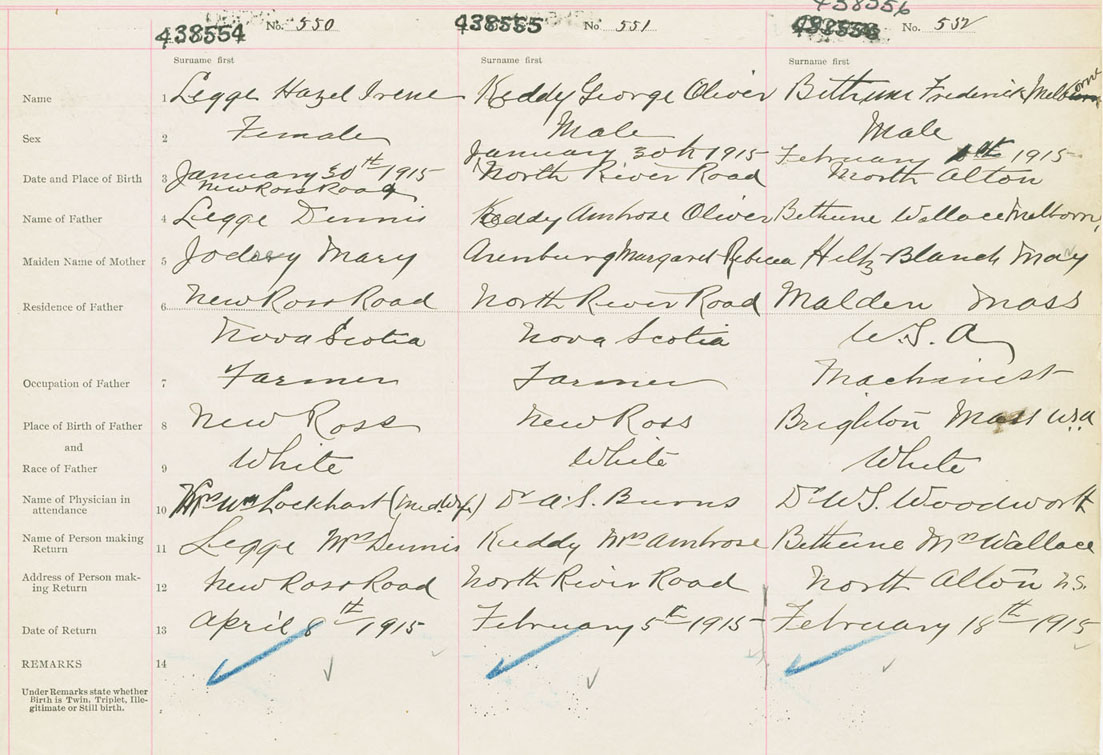 438556
438554 No. 550 438555 No 551 438556 No. 552
Surname first Surname first Surname first
Name 1 Legge Hazel Irene Keddy George Oliver Bethune Frederick Melborne
Sex 2 Female Male Male
Date and Place of Birth 3 January 30th 1915 January 30th 1915 February 1915
New Ross Road North River Road North Alton
Name of Father 4 Legge Dennis Keddy Ambrose Oliver Bethune Wallace Melborn,
Maiden Name of Mother 5 Jodrey Mary Arenburg Margaret Rebecca Hiltz Blanch May
Residence of Father 6 New Ross Road North River Road Malden Mass
Nova Scotia Nova Scotia U.S.A
Occupation of Father 7 Farmer Farmer Machinest
Place of Birth of Father 8 New Ross New Ross Brighton Mass U.S.A
and
Race of Father 9 White White White
Name of Physician in
attendance 10 Mrs Wm Lockhart (Midwife) Dr A.S. Burns Dr W.S. Woodworth
Name of Person making
Return 11 Legge Mrs Dennis Keddy Mrs Ambrose Bethune Mrs Wallace
Address of Person mak-
ing Return 12 New Ross Road North River Road North Alton N.S.
Date of Return 13 April 8th 1915 February 5th 1915 February 18th 1915
REMARKS 14
Under Remarks state whether
Birth is Twin, Triplet, Ille-
gitimate or Still birth.